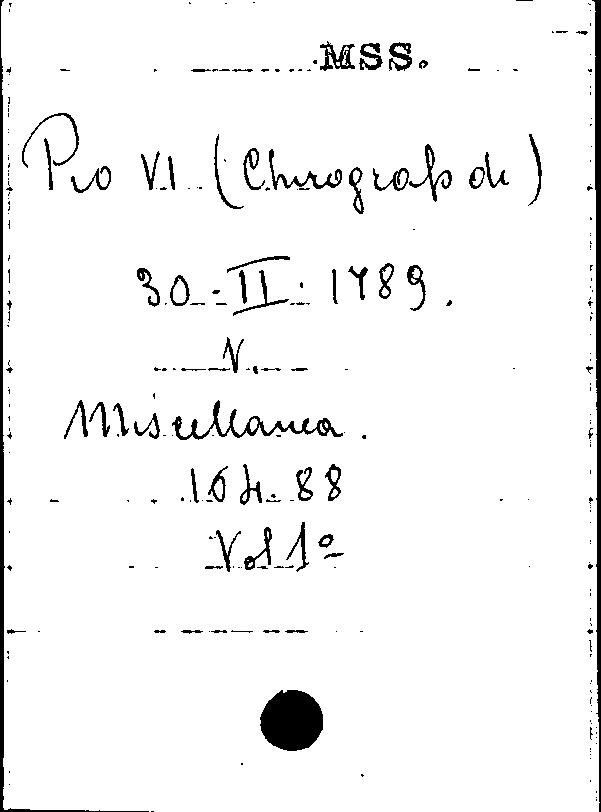 MSS.
Pio VI (Chirografo de)
30-II-1789.
V.
Miscellanea.
104.88
Vol 1º